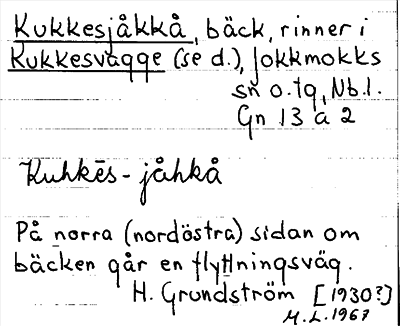 Kukkesjåkkå, bäck, rinner i
Kukkesvagge (se d.), Jokkmokks
sn o. tg, Nb. l.
Gn 13 a 2
Kuhkēs-jåhkå
På norra (nordöstra) sidan om
bäcken går en flyttningsväg.
H. Grundström [1930?]
M. L. 1967